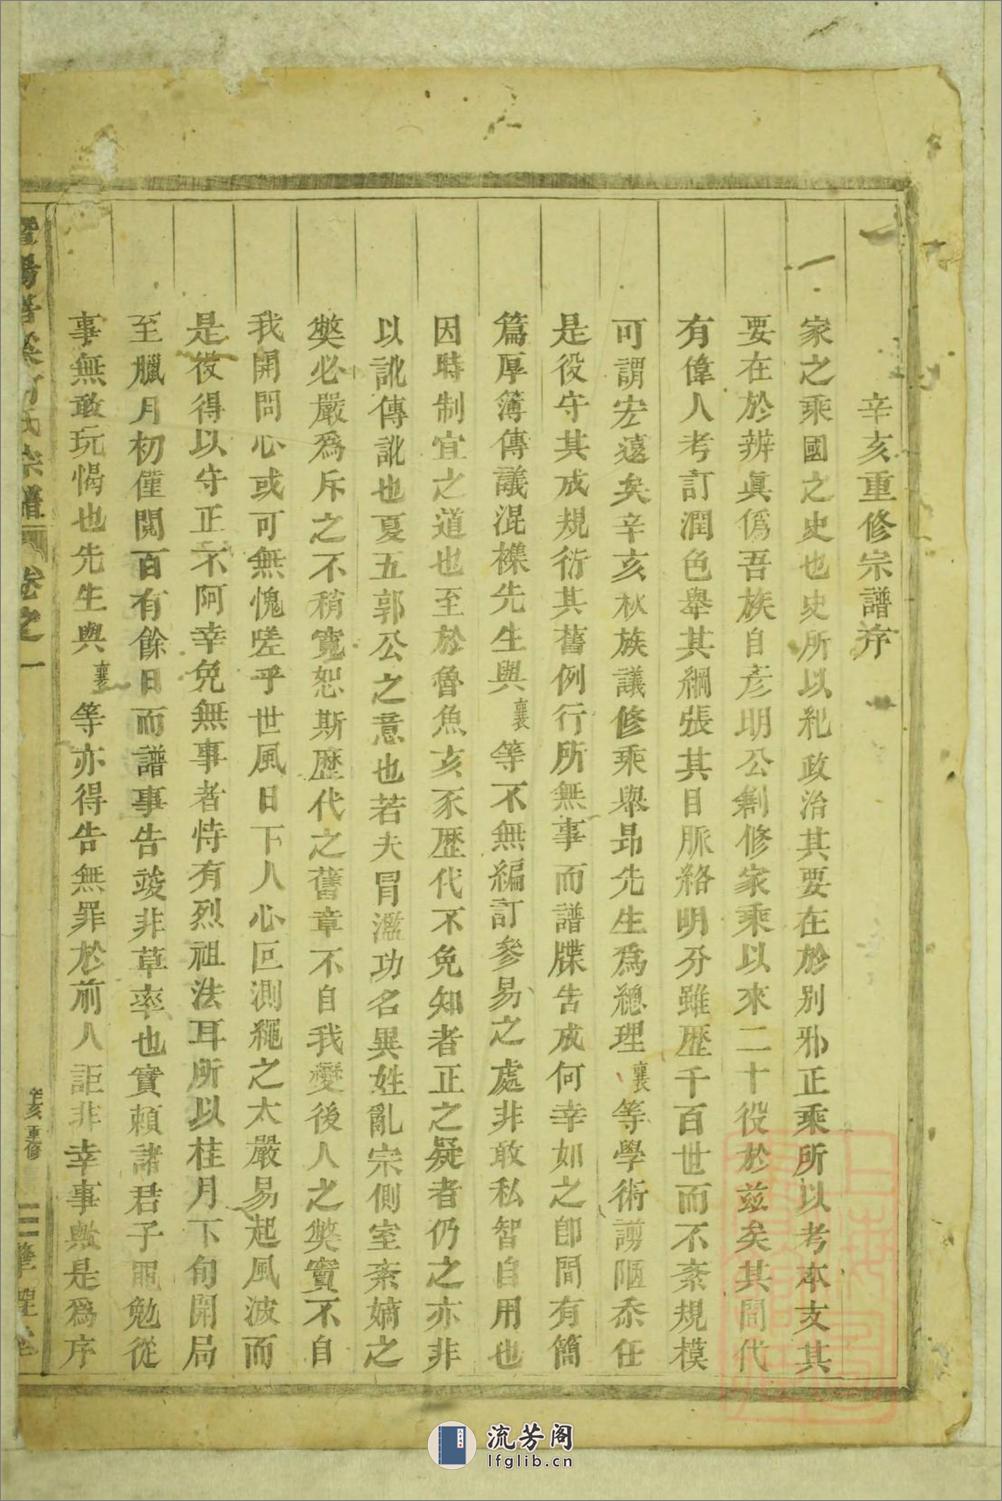 辛亥重修宗譜序
家之乘國之史也史所以紀政治其要在於別邪正乘所以考本支其
要在於辨眞僞吾族自彥明公創修家乘以來二十役於茲矣其間代
有偉人考訂潤色舉其綱張其目脈絡明分雖歷千百世而不紊規模
可謂宏遠矣辛亥秋族議修乘舉昂先生爲總理襄等學術謭陋忝任
是役守其成規衍其舊例行所無事而譜牒告成何幸如之卽間有簡
篇厚簿傳議混襍先生與襄等不無編訂參易之處非敢私智自用也
因時制宜之道也至於魯魚亥豕歷代不免知者正之疑者仍之亦非
以訛傳訛也夏五郭公之意也若夫冒濫功名異姓亂宗側室紊嫡之
獘必嚴爲斥之不稍寬恕斯歷代之舊章不自我變後人之獘實不自
我開問心或可無愧嗟乎世風日下人心叵測繩之太嚴易起風波而
是役得以守正不阿幸免無事者恃有烈祖法耳所以桂月下旬開局
至臘月初僅閱百有餘日而譜事告竣非草率也實賴諸君子黽勉從
事無敢玩愒也先生與襄等亦得告無罪於前人詎非幸事歟是爲序
暨陽
氏宗譜
卷之一
辛亥重修
三
流芳阁
lfglib.cn